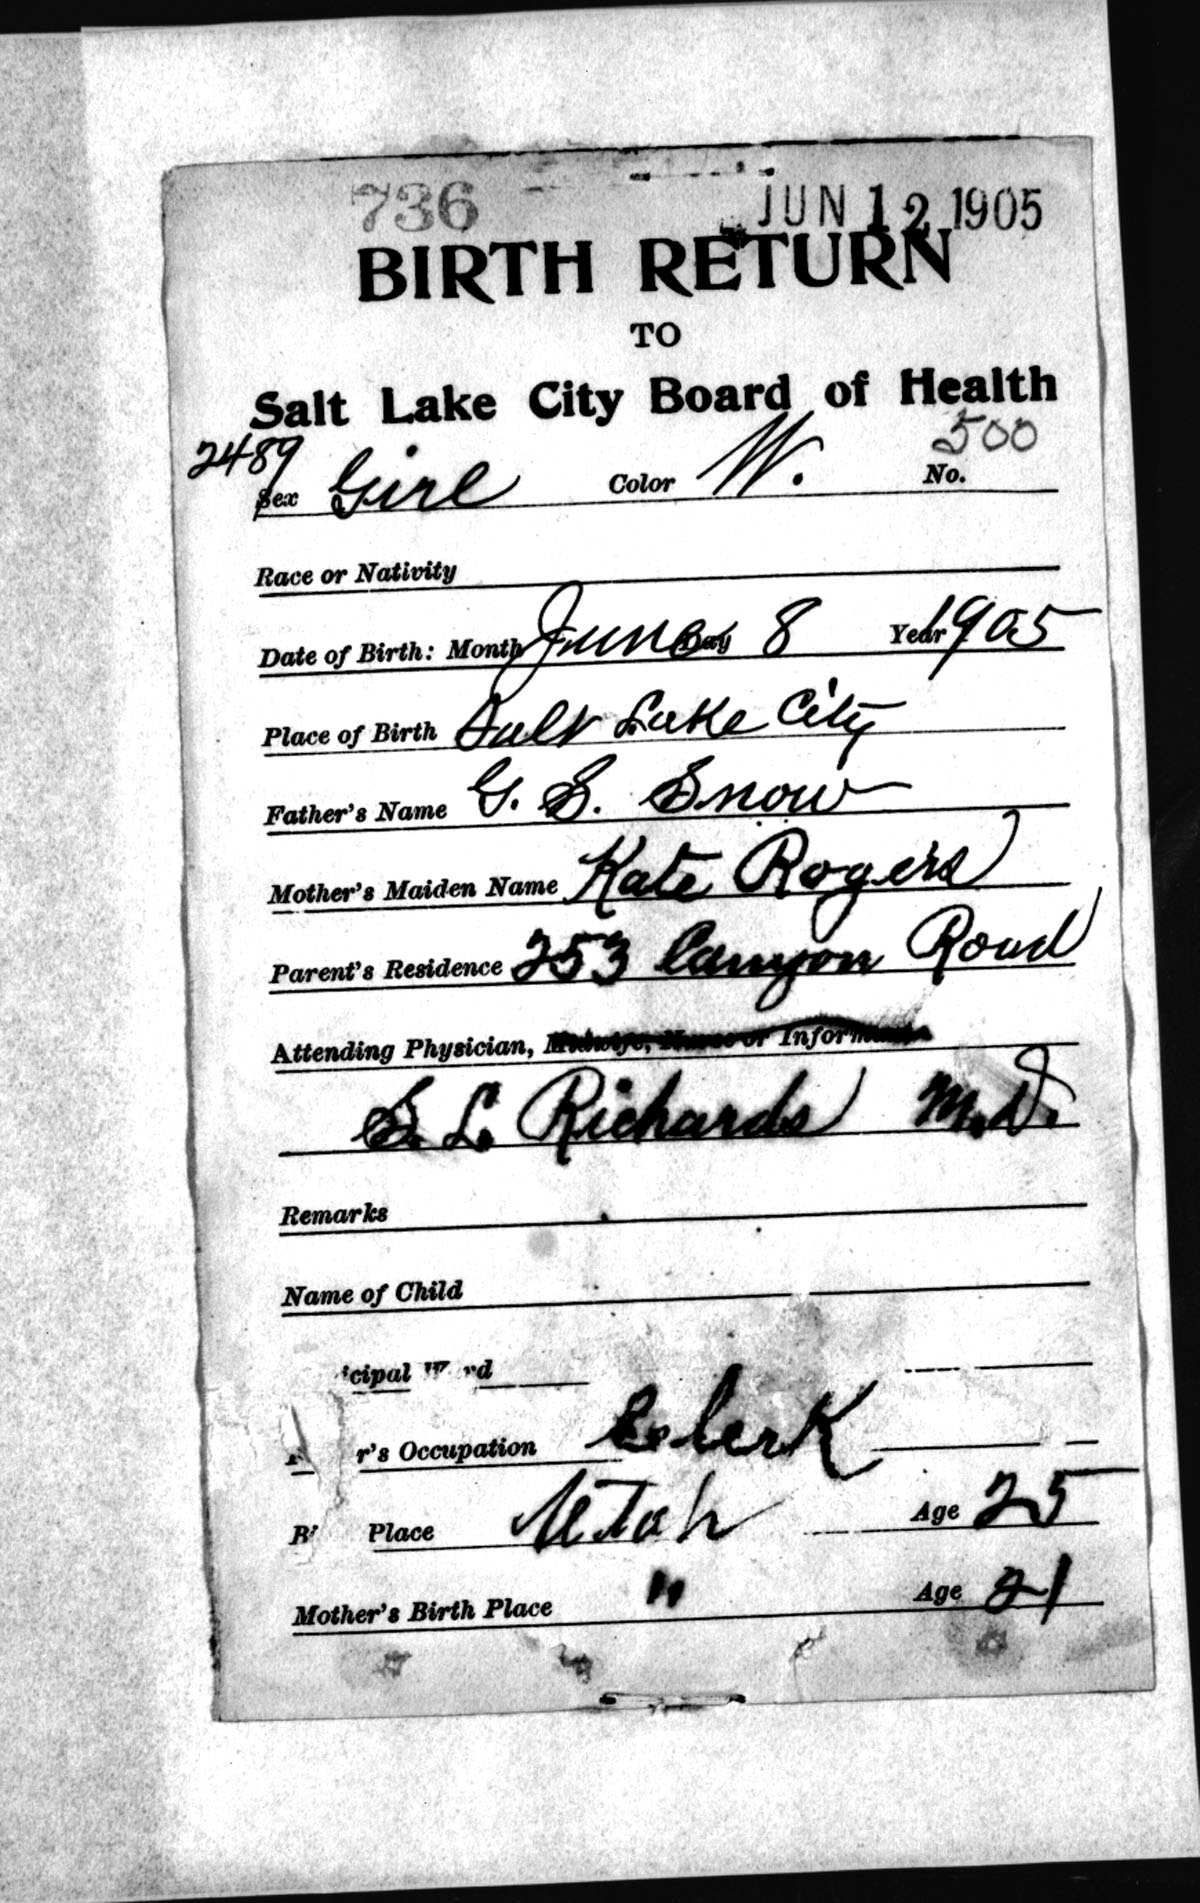 736 JUN 12 1905
BIRTH RETURN
TO
Salt Lake City Board of Health
2489 500
Sex Girl Color W. No.
Race or Nativity
Date of Birth: Month June Day 8 Year 1905
Place of Birth Salt Lake City
Father's Name G. S. Snow
Mother's Maiden Name Kate Rogers
Parent's Residence 253 Canyon Road
Attending Physician, Midwife, Nurse or Informant
S. L. Richards M.D.
Remarks
Name of Child
icipal Ward
r's Occupation Clerk
Place Utah Age 25
Mother's Birth Place " Age 21